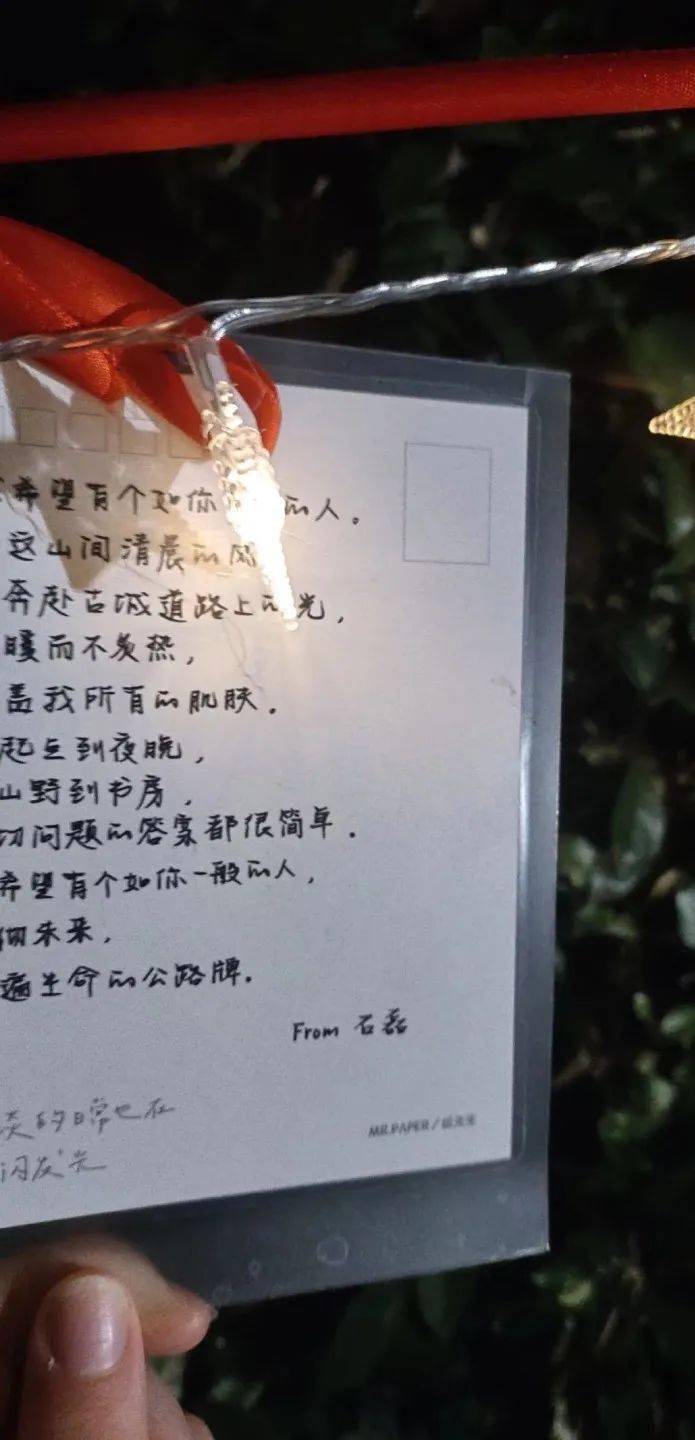 希望有个如你的人。
这山间清晨的风
奔赴古城道路上的光，
暖而不炙热，
盖我所有的肌肤。
起点到夜晚，
山野到书房，
切问题的答案都很简单。
希望有个如你一般的人，
未来，
遍生命的公路牌。
From 石磊
的日常也在
闪发光
MR.PAPER /